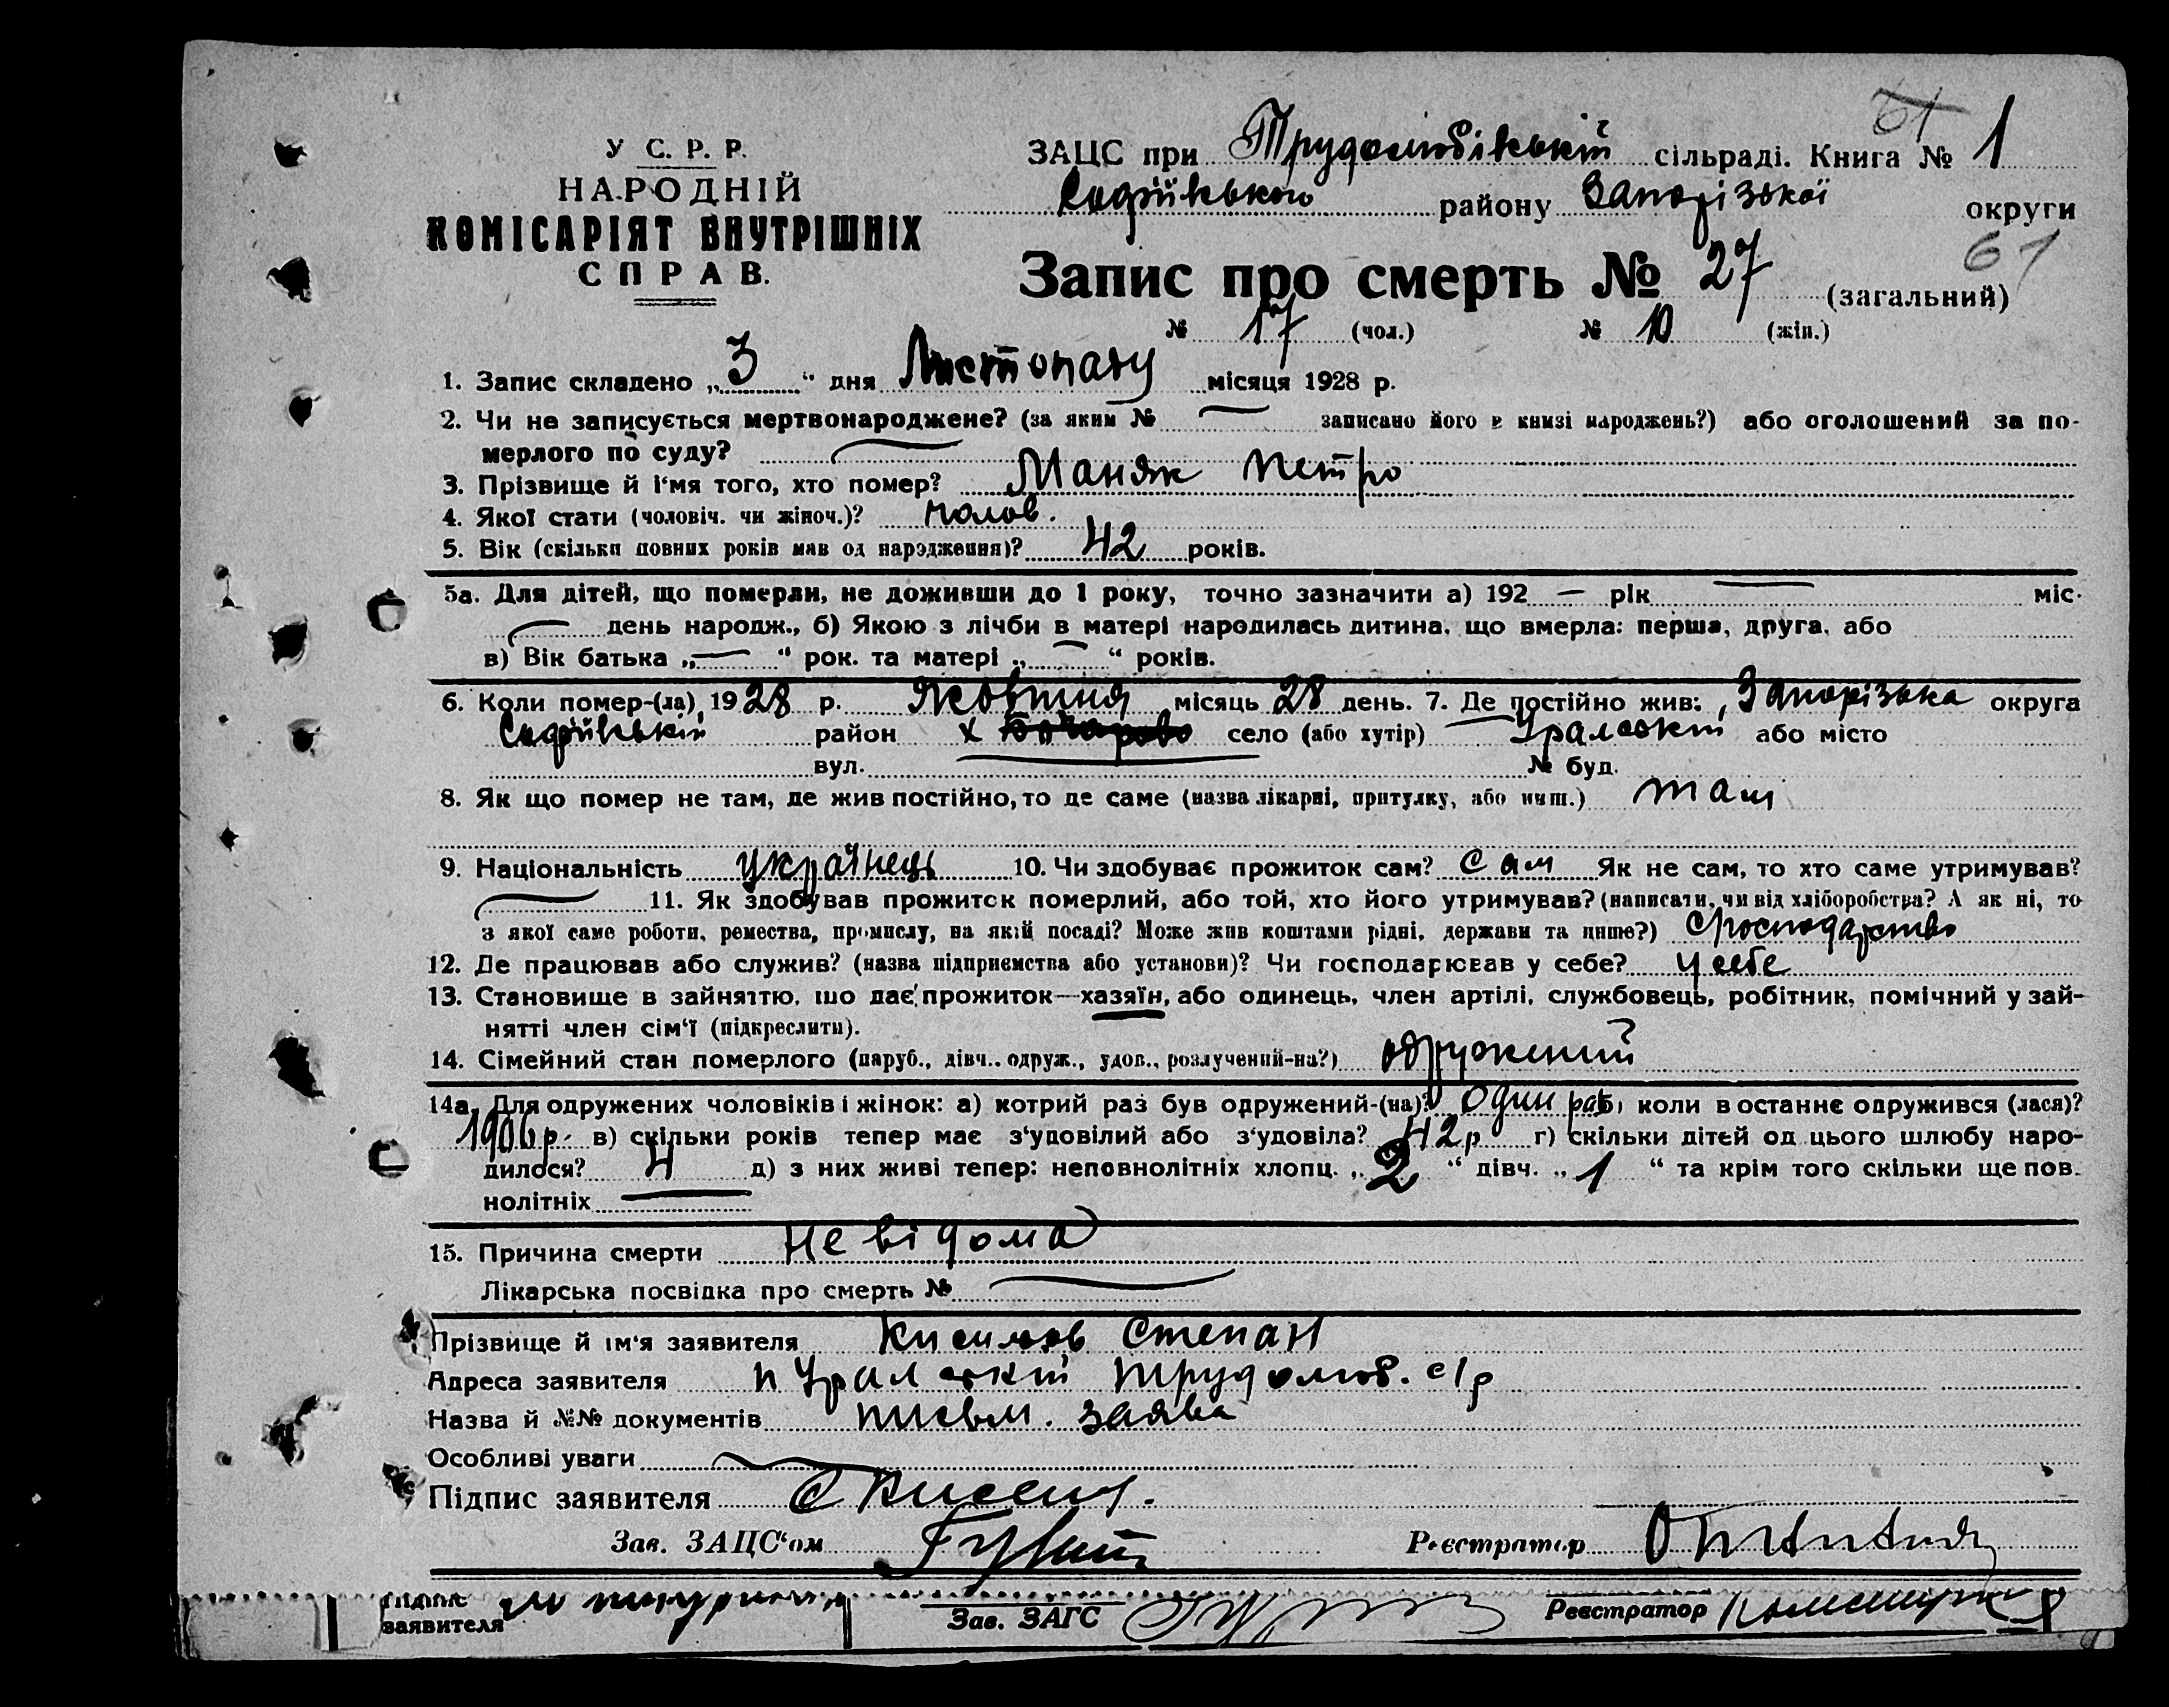 У С. Р. Р.
НАРОДНІЙ
КОМІСАРІЯТ ВНУТРІШНІХ
СПРАВ.
61
ЗАЦС при Трудолюбівській сільраді. Книга № 1
Софіївського району Запорізької округи
61
Запис про смерть № 27 (загальний)
№ 17 (чол.) № 10 (жін.)
1. Запис складено „ 3 “ дня Листопаду місяця 1928 р.
2. Чи не записується мертвонароджене? (за яким № — записано його в книзі народжень?) або оголошений за по-
мерлого по суду? —
3. Прізвище й і‘мя того, хто помер? Маняк Петро
4. Якої стати (чоловіч. чи жіноч.)? чолов.
5. Вік (скільки повних років мав од народження)? 42 років.
5а. Для дітей, що померли, не доживши до 1 року, точно зазначити а) 192 — рік — міс.
— день народж., б) Якою з лічби в матері народилась дитина, що вмерла: перша, друга, або
в) Вік батька „ — “ рок. та матері „ — “ років.
6. Коли помер-(ла) 1928 р. Жовтня місяць 28 день. 7. Де постійно жив: Запорізька округа
Софіївській район х село (або хутір) Уральській або місто
вул. — № буд.
8. Як що помер не там, де жив постійно, то де саме (назва лікарні, притулку, або инш.) там
9. Національність українець 10. Чи здобуває прожиток сам? сам Як не сам, то хто саме утримував?
— 11. Як здобував прожиток померлий, або той, хто його утримував? (написати, чи від хліборобства? А як ні, то
з якої саме роботи, ремества, промислу, на якій посаді? Може жив коштами рідні, держави та инше?) Сгосподарство
12. Де працював або служив? (назва підприємства або установи)? Чи господарював у себе? у себе
13. Становище в зайняттю, що дає прожиток—хазяїн, або одинець, член артілі, службовець, робітник, помічний у зай-
нятті член сім‘ї (підкреслити).
14. Сімейний стан померлого (паруб., дівч., одруж., удов., розлучений-на?) одружений
14а. Для одружених чоловіків і жінок: а) котрий раз був одружений-(на)? один раз б) коли в останнє одружився (лася)?
1906 р. в) скільки років тепер має з‘удовілий або з‘удовіла? 42 р г) скільки дітей од цього шлюбу наро-
дилося? 4 д) з них живі тепер: неповнолітніх хлопц. „ 2 “ дівч. „ 1 “ та крім того скільки ще пов.
нолітніх —
15. Причина смерти Невідома
Лікарська посвідка про смерть № —
Прізвище й ім‘я заявителя Степан
Адреса заявителя п Уральській Трудолюб. с/р
Назва й №№ документів письм. заява
Особливі уваги —
Підпис заявителя
Зав. ЗАЦС‘ом Реєстратор
Підпис
заявителя
Зав. ЗАГС Реєстратор